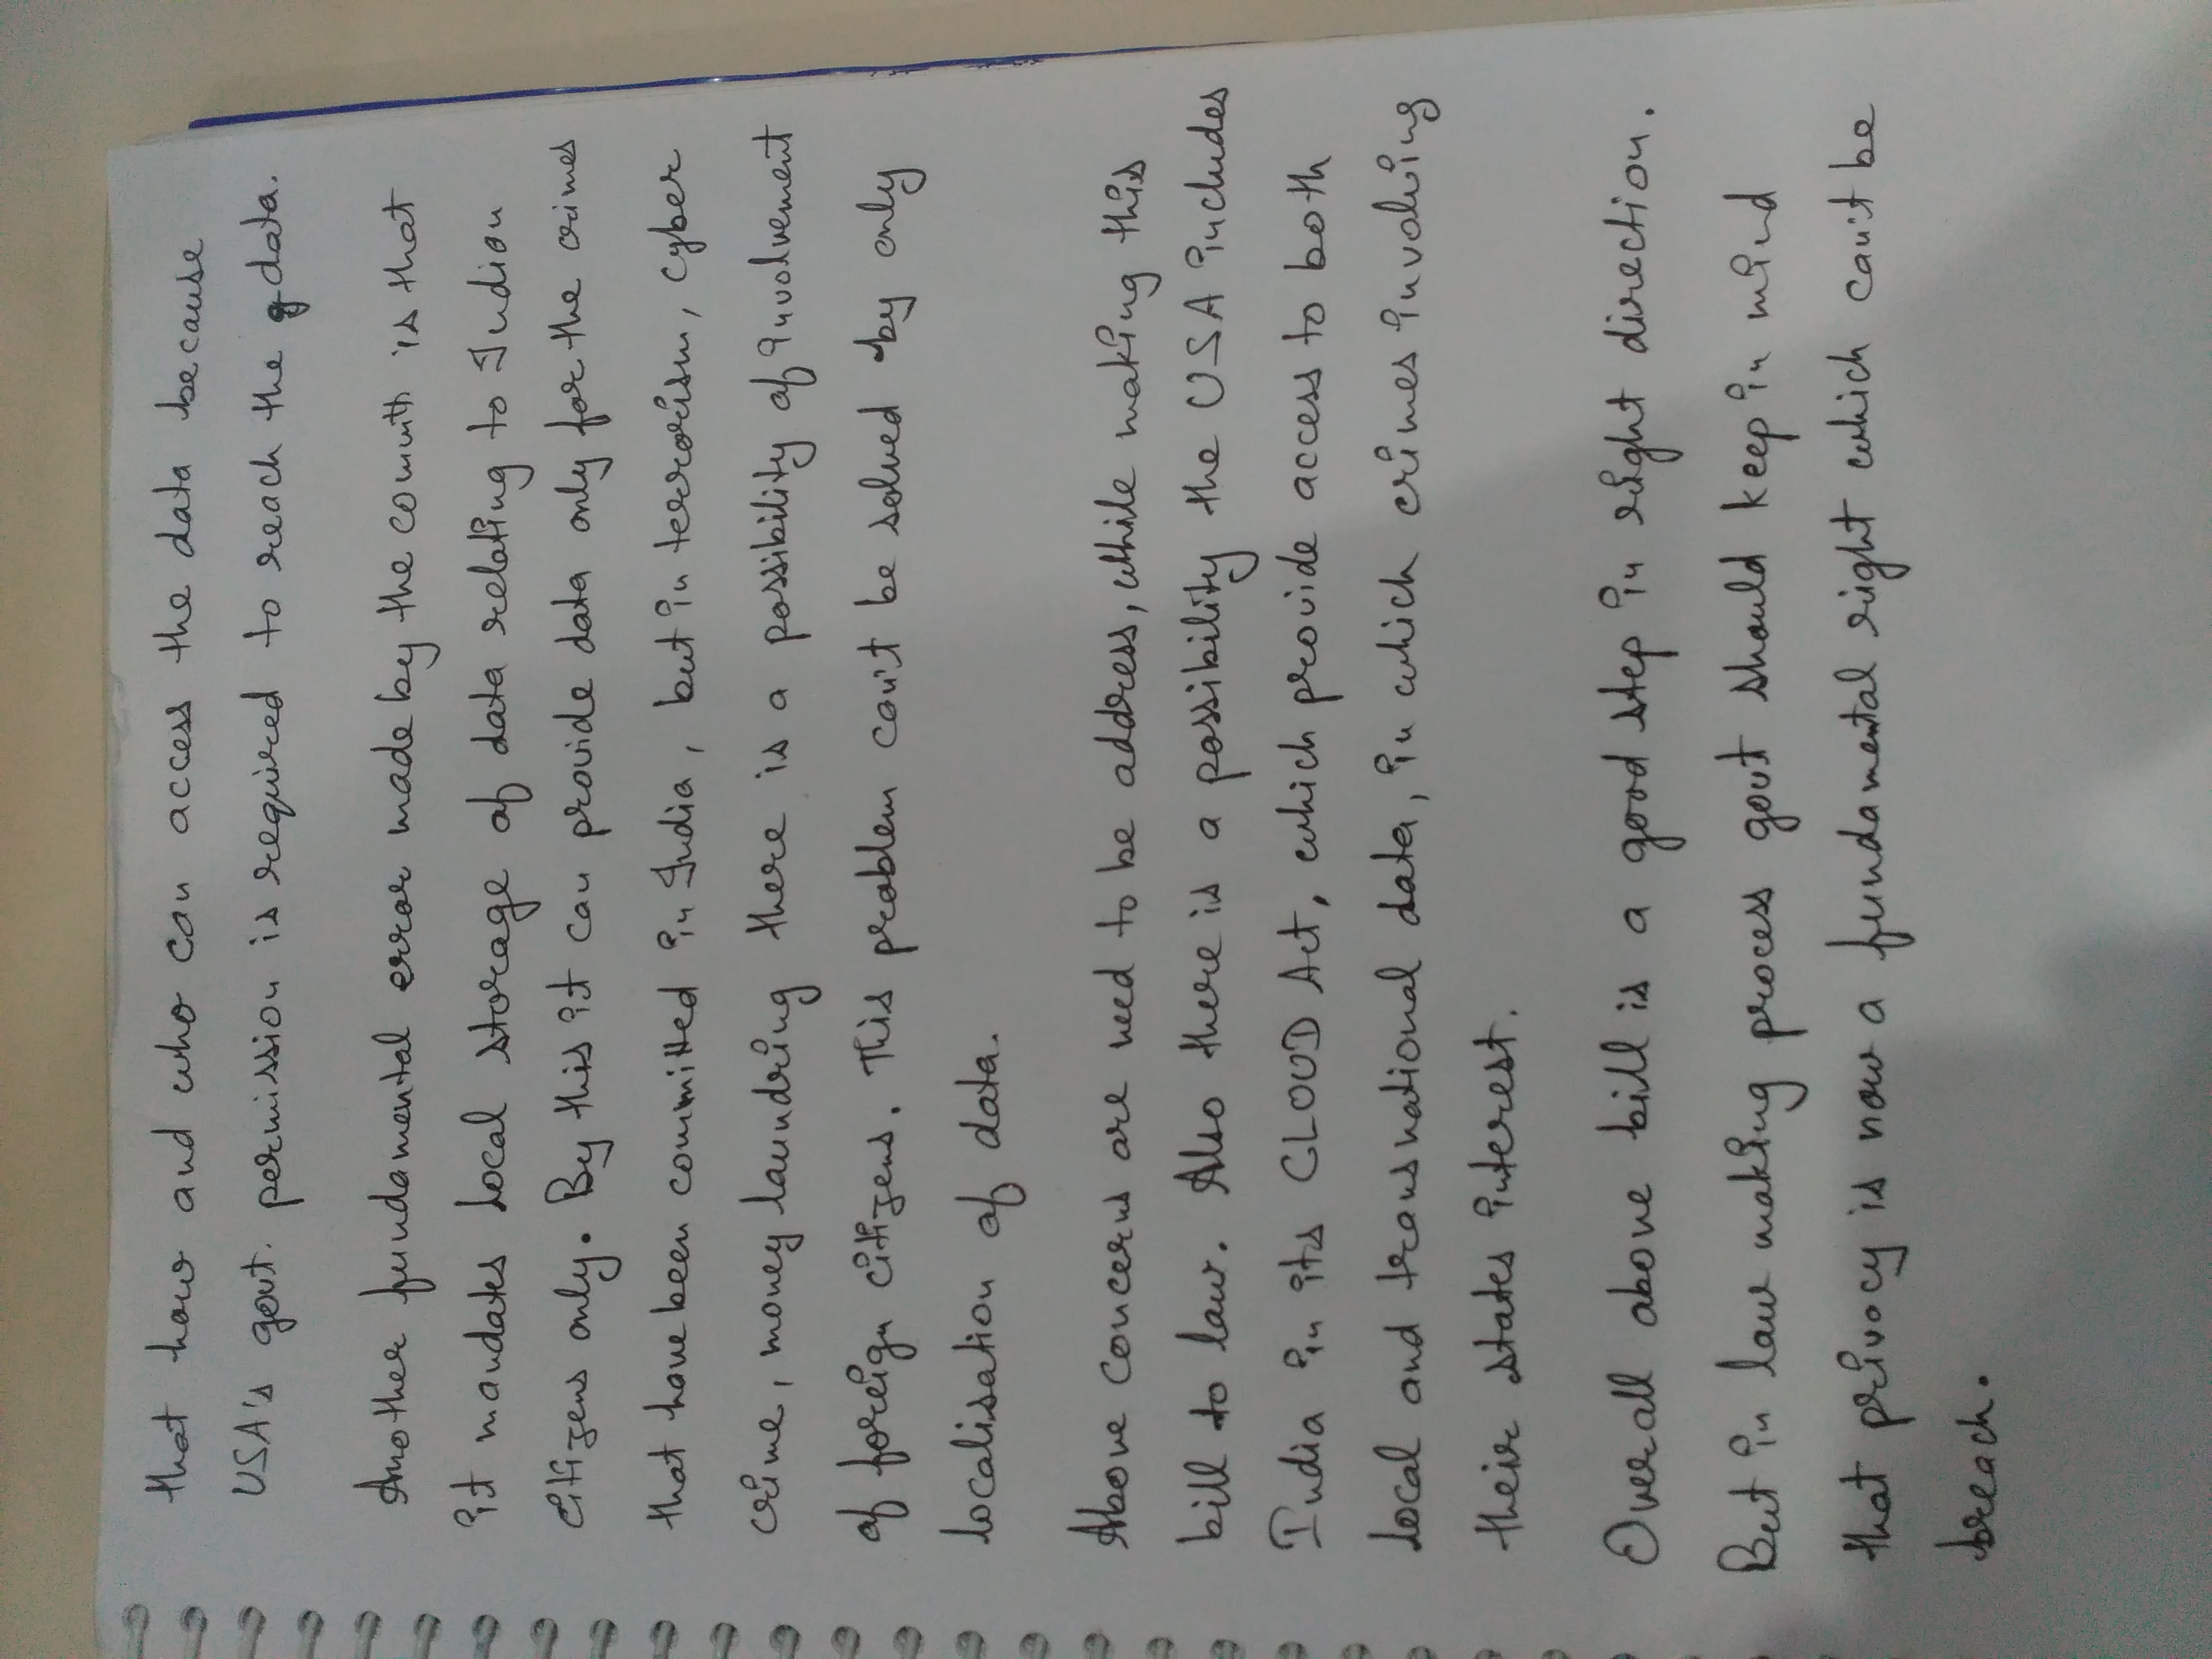 that how and who can access the data because
USA's govt. permission is required to reach the data.
Another fundamental error made by the committ is that
it mandates local storage of data relating to Indian
citizens only. By this it can provide data only for the crimes
that have been committed in India, but in terrorism, cyber
crime, money laundring there is a possibility of involvement
of foreign citizens. This problem can't be solved by only
localisation of data.
Above concerns are need to be address, while making this
bill to law. Also there is a possibility the USA includes
India in its CLOUD Act, which provide access to both
local and transnational data, in which crimes involving
their states interest.
Overall above bill is a good step in right direction.
But in law making process govt should keep in mind
that privacy is now a fundamental right which can't be
breach.